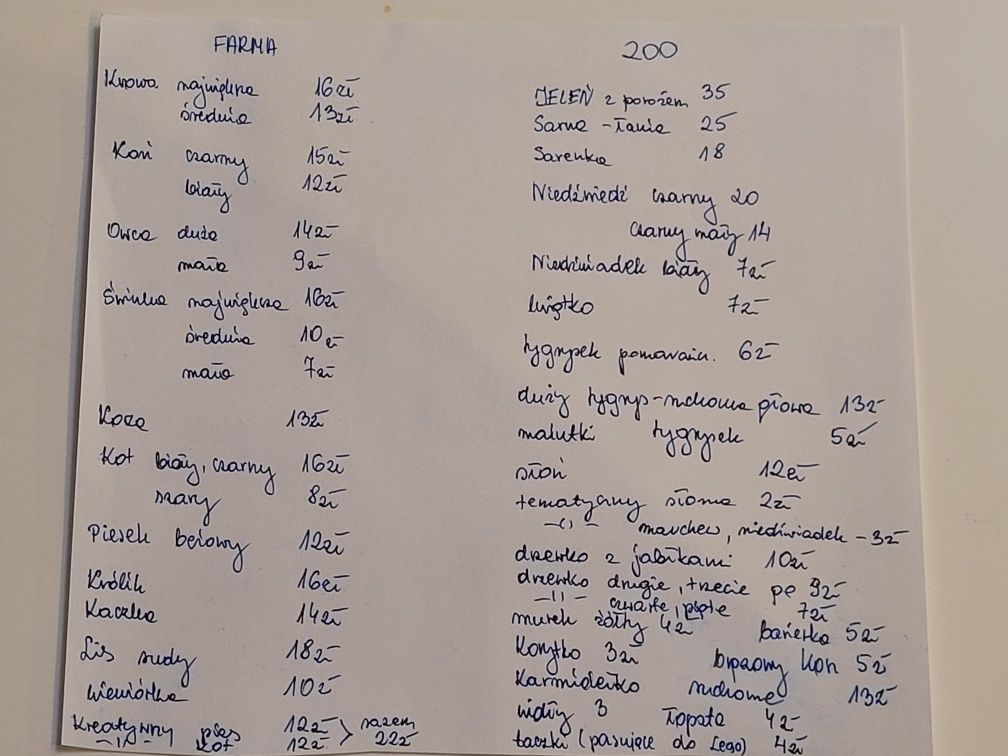 FARMA
Krowa największa 16zł
średnia 13zł
Koń czarny 15zł
biały 12zł
Owca duża 14zł
mała 9zł
Świnka największa 16zł
średnia 10zł
mała 7zł
Koza 13zł
Kot biały, czarny 16zł
szary 8zł
Piesek beżowy 12zł
Królik 16zł
Kaczka 14zł
Lis rudy 18zł
wiewiórka 10zł
Kreatywny pies 12zł
-〃- kot 12zł > razem 22zł
ZOO
JELEŃ z porożem 35
Sarna - Łania 25
Sarenka 18
Niedźwiedź czarny 20
czarny mały 14
Niedźwiadek biały 7zł
lwiątko 7zł
tygrysek pomarańcz. 6zł
duży tygrys-ruchoma głowa 13zł
malutki tygrysek 5zł
słoń 12zł
tematyczny słoma 2zł
-〃- marchew, niedźwiadek - 3zł
drzewko z jabłkami 10zł
drzewko drugie, trzecie po 9zł
-〃- czwarte, piąte 7zł
murek żółty 4zł barierka 5zł
Korytko 3zł brązowy koń 5zł
Karmidełko ruchome 13zł
widły 3 łopata 4zł
taczki (pasujące do Lego) 4zł